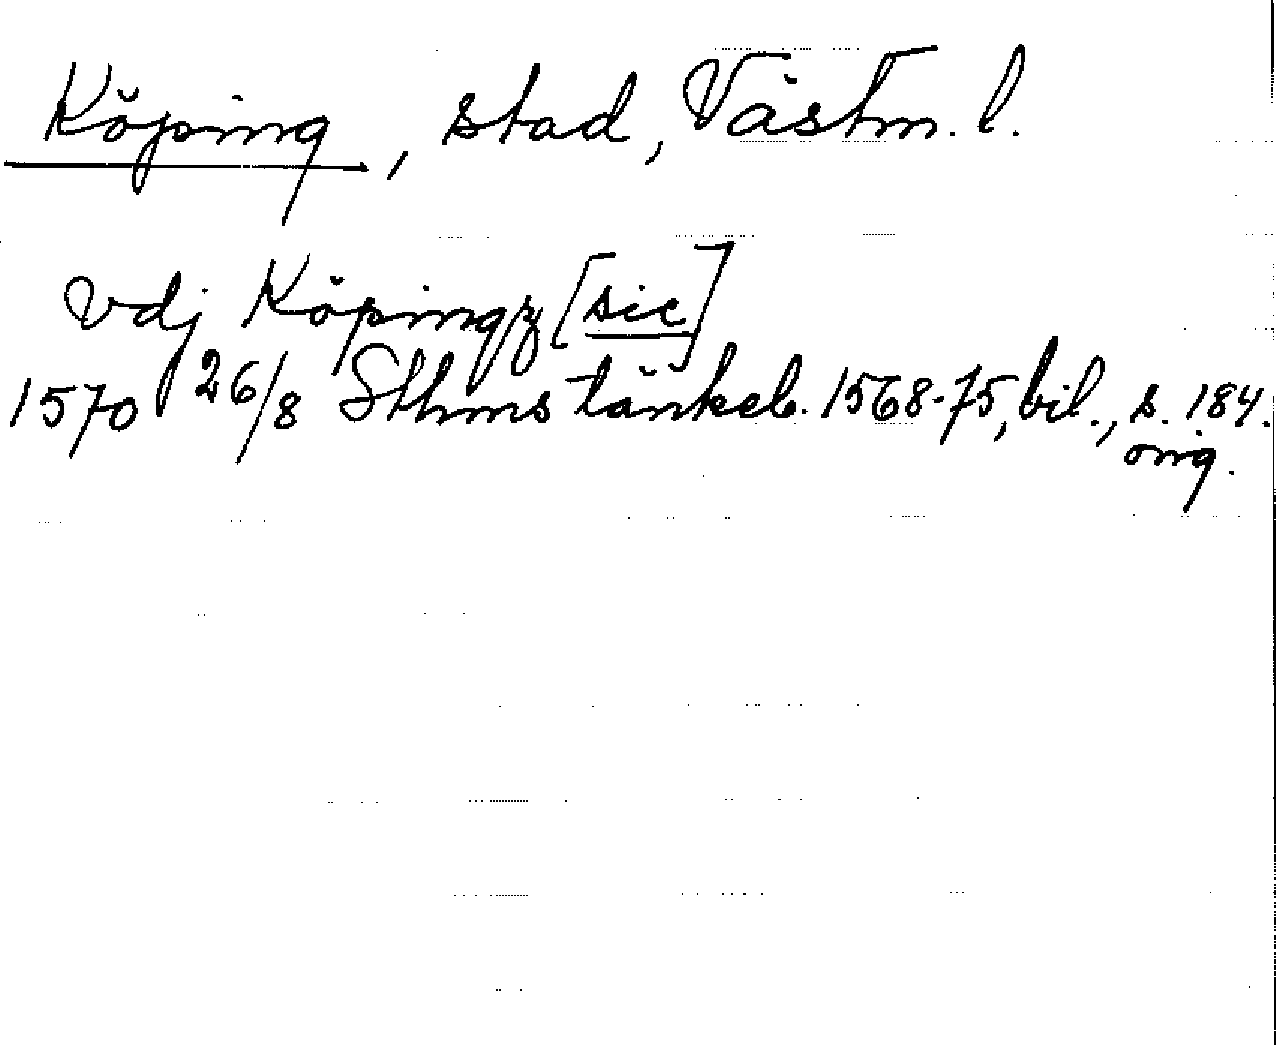 Köping, stad, Västm. l.
vdj Köpingz [sic]
1570 26/8 Sthms tänkeb. 1568-75, bil., s. 184.
orig.